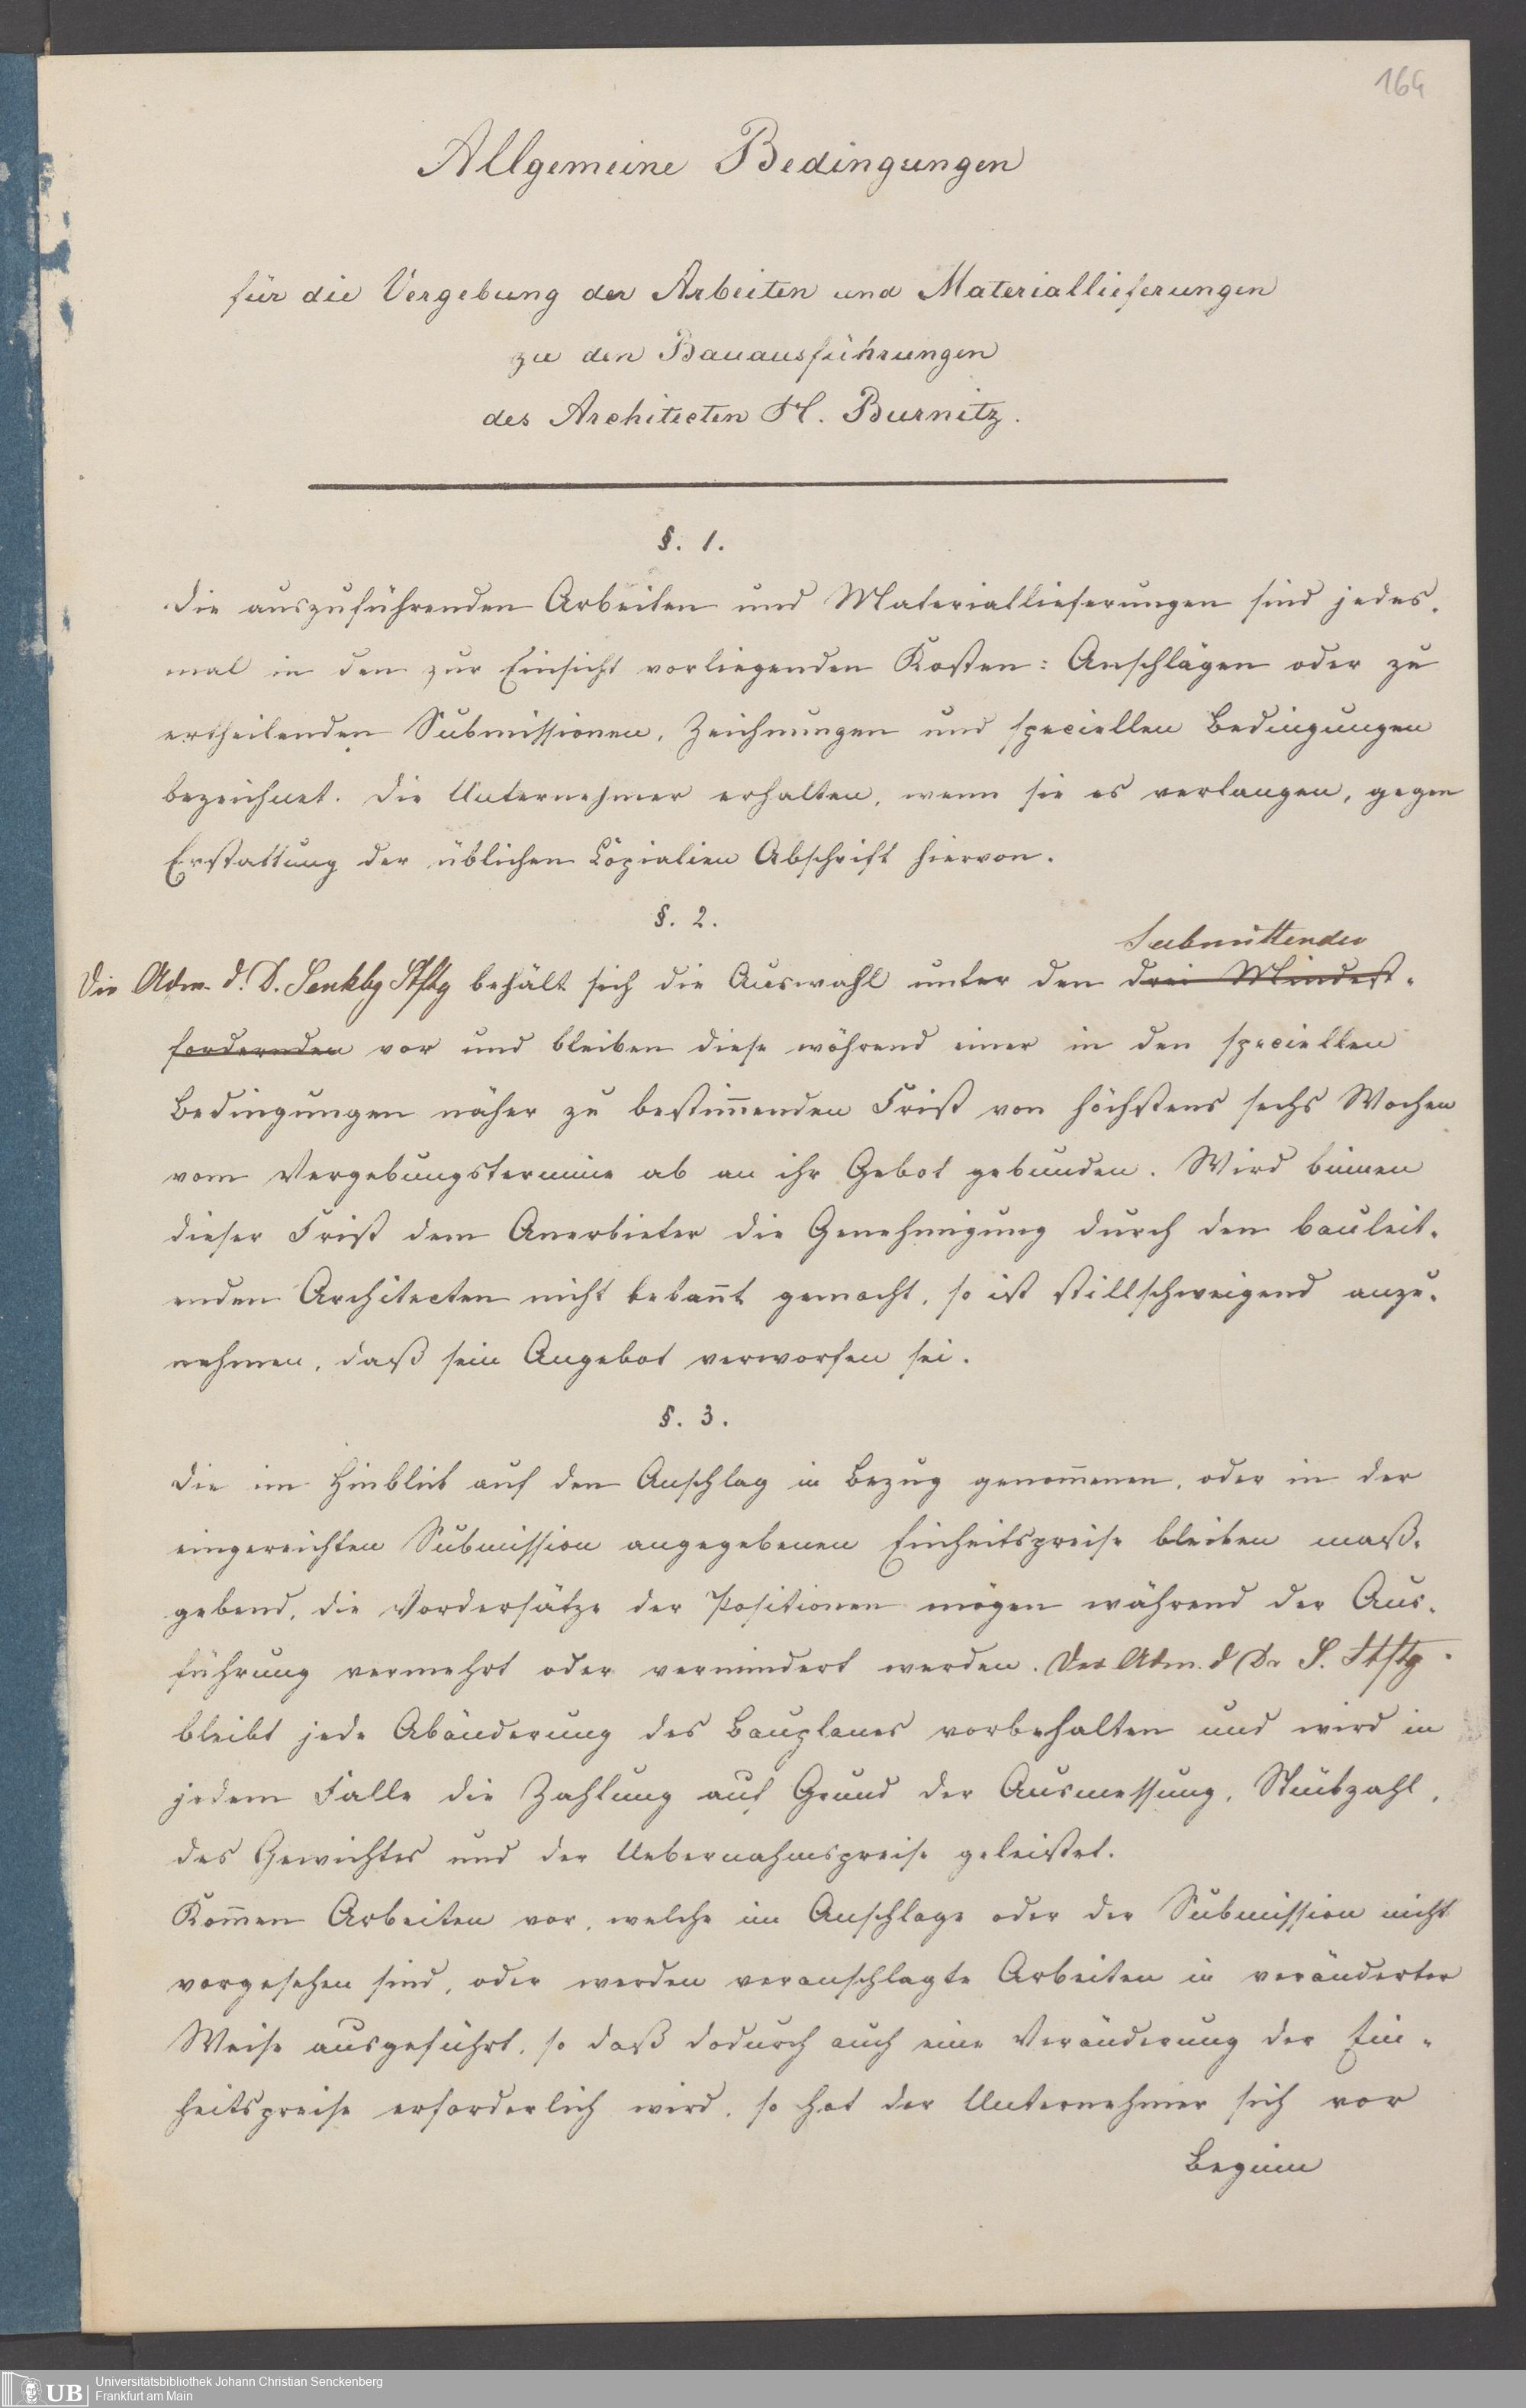 164
Allgemeine Bedingungen
für die Vergebung der Arbeiten und Materiallieferungen
zu den Bauausführungen
des Architecten H. Burnitz.
§. 1.
Die auszuführenden Arbeiten und Materiallieferungen sind jedes-
mal in den zur Einsicht vorliegenden Kosten: Anschlägen oder zu
ertheilenden Submissionen, Zeichnungen und speciellen Bedingungen
bezeichnet. Die Unternehmer erhalten, wenn sie es verlangen, gegen
Erstattung der üblichen Copialien Abschrift hiervon.
§. 2.
Submittenden
Die Adm. d. D. Senkbg Stftg behält sich die Auswahl unter den drei Mindest-
fordernden vor und bleiben diese während einer in den speciellen
Bedingungen näher zu bestim̅enden Frist von höchstens sechs Wochen
vom Vergebungstermine ab an ihr Gebot gebunden. Wird binnen
dieser Frist dem Anerbieter die Genehmigung durch den bauleit-
enden Architecten nicht bekan̅t gemacht, so ist stillschweigend anzu-
nehmen, daß sein Angebot verworfen sei.
§. 3.
Die im Hinblick auf den Anschlag in Bezug genom̅enen, oder in der
eingereichten Submission angegebenen Einheitspreise bleiben maß-
gebend, die Vordersätze der Positionen mögen während der Aus-
führung vermehrt oder vermindert werden. Der Adm. d Dr S. Stftg
bleibt jede Abänderung des Bauplanes vorbehalten und wird in
jedem Falle die Zahlung auf Grund der Ausmessung, Stückzahl,
des Gewichtes und der Uebernahmspreise geleistet.
Kom̅en Arbeiten vor, welche im Anschlage oder der Submission nicht
vorgesehen sind, oder werden veranschlagte Arbeiten in veränderter
Weise ausgeführt, so daß dadurch auch eine Veränderung der Ein-
heitspreise erforderlich wird, so hat der Unternehmer sich vor
Beginn
UB
Universitätsbibliothek Johann Christian Senckenberg
Frankfurt am Main